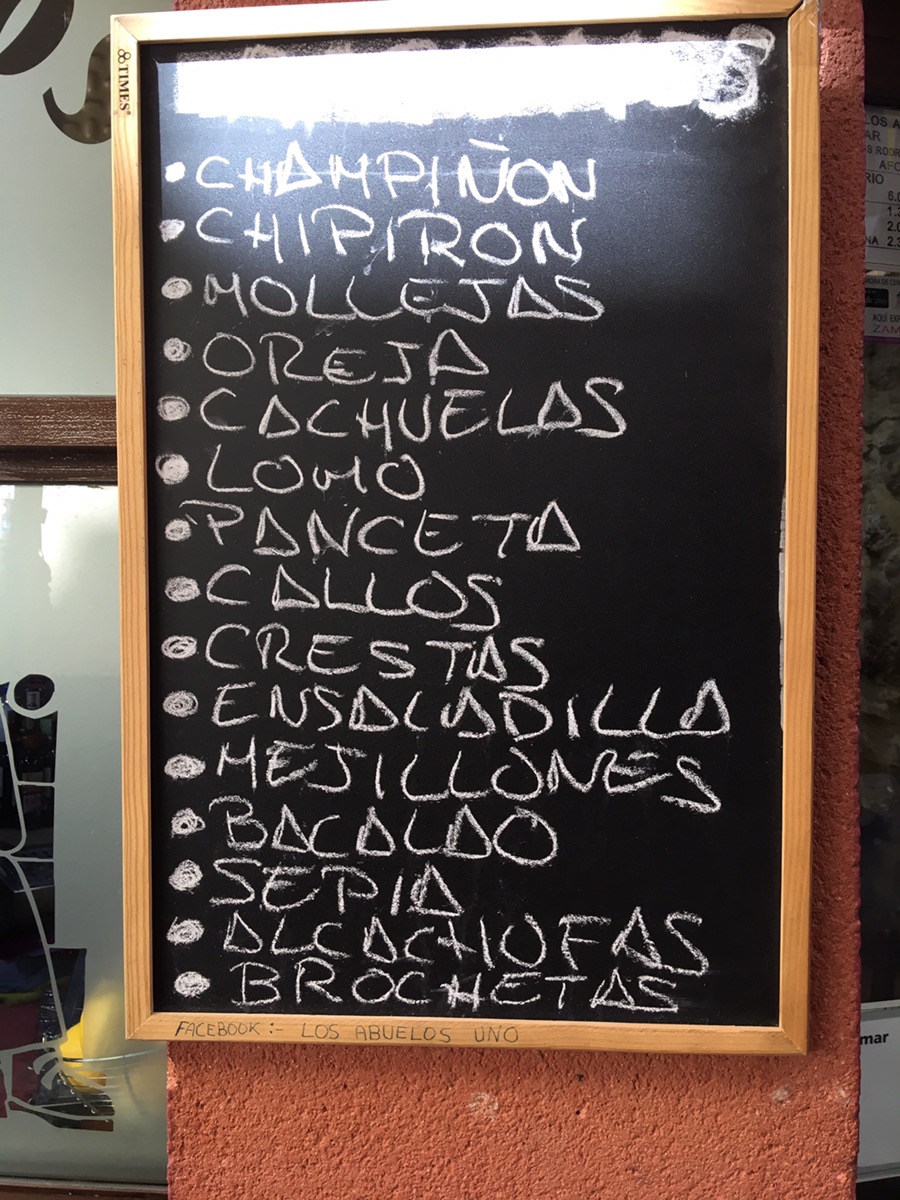 TIMES
• CHAMPIÑON
• CHIPIRON
• MOLLEJAS
• OREJA
• CACHUELAS
• LOMO
• PANCETA
• CALLOS
• CRESTAS
• ENSALADILLA
• MEJILLONES
• BACALAO
• SEPIA
• ALCACHOFAS
• BROCHETAS
FACEBOOK:- LOS ABUELOS UNO
LOS A
AR
RIO
6.0
1.3
2.0
NA 2.3
AQUÍ EXP
ZAM
mar